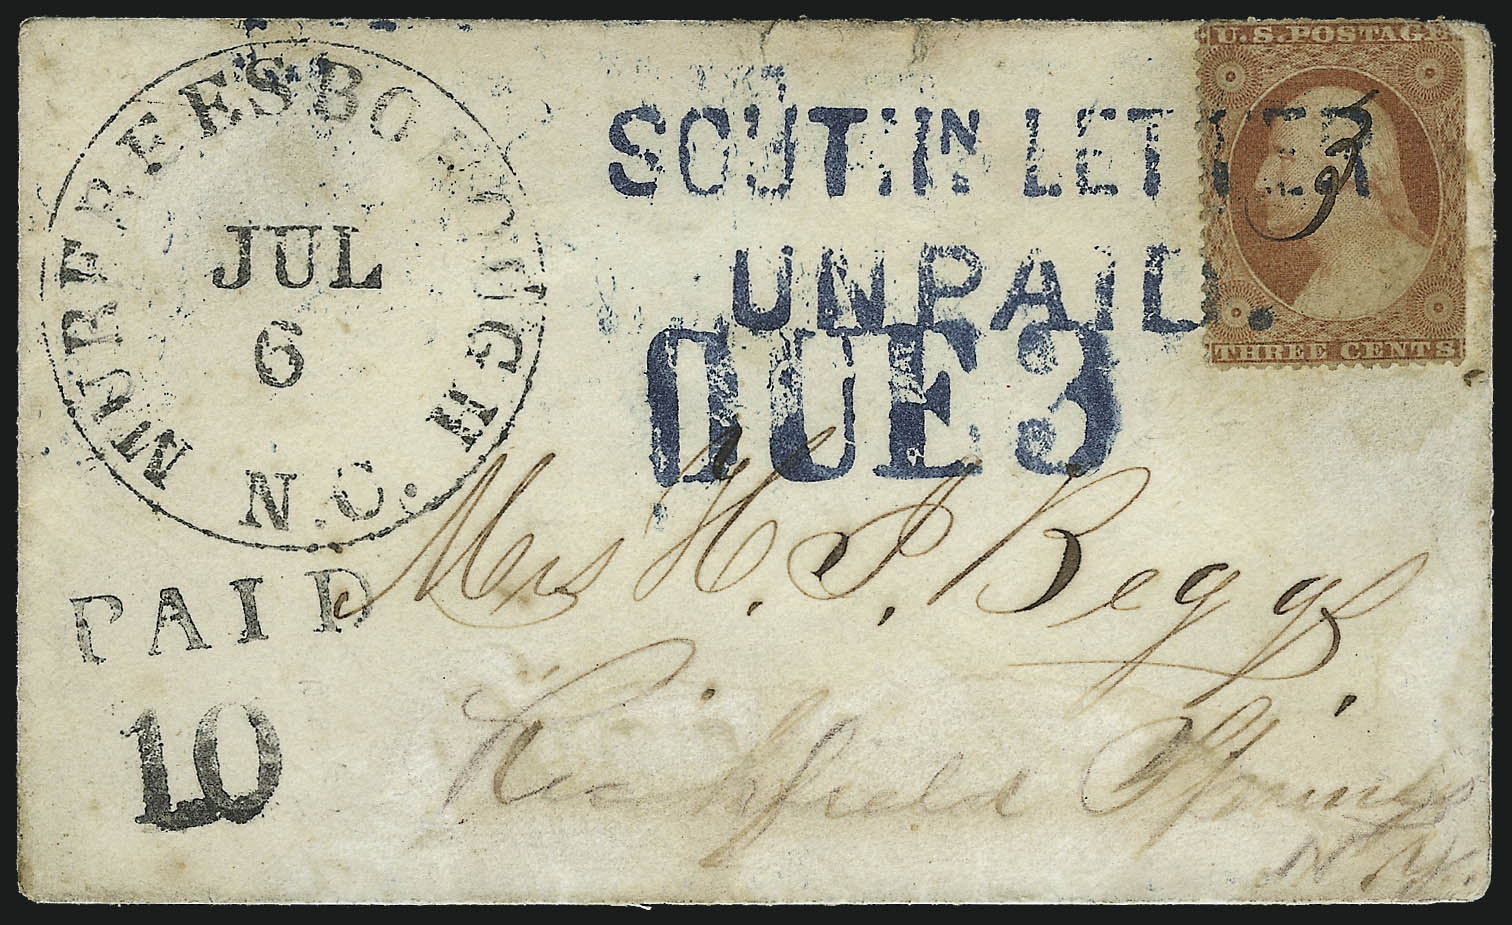 MURFREESBOROUGH
JUL
6
N.C.
PAID
10
SOUTHN LETTER
UNPAID.
DUE 3
U.S. POSTAGE
THREE CENTS
Mrs H. I. Beggs.
Richfield Springs
N.Y.